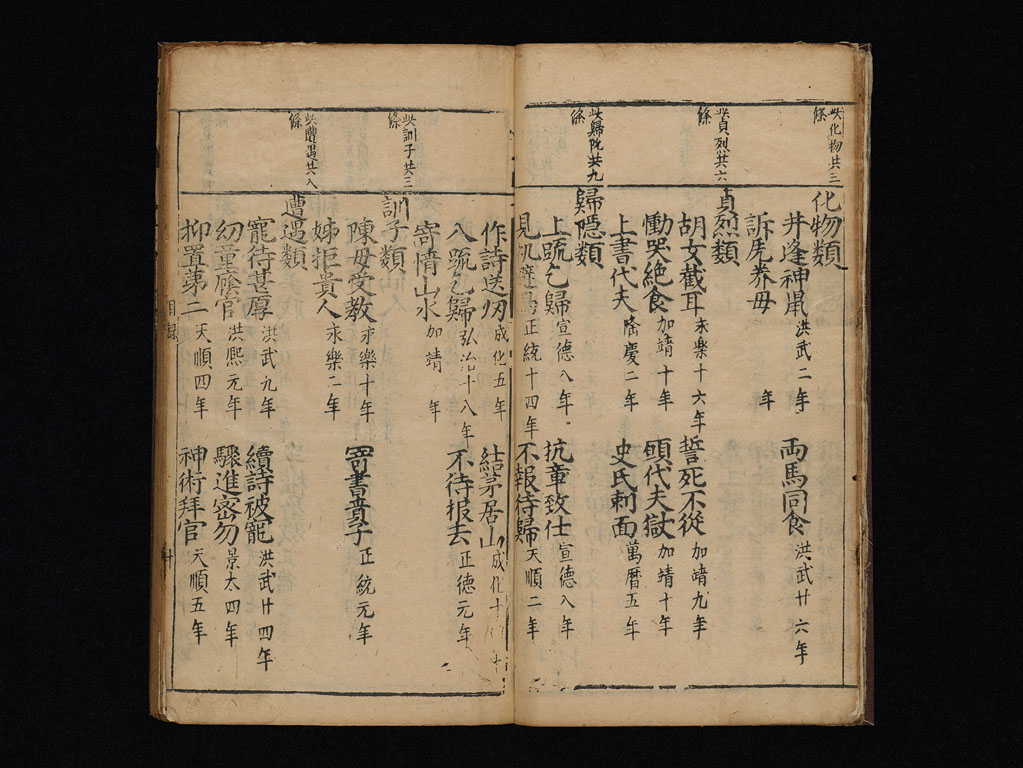 此化物共三條
化物類
井逢神鼡 洪武二年 両馬同食 洪武廿六年
訴虎养母 年
此貞烈共六條
貞烈類
胡女截耳 永樂十六年 誓死不從 加靖九年
慟哭絶食 加靖十年 頭代夫獄 加靖十年
上書代夫 隆慶二年 史氏刺面 萬暦五年
此歸隐共九條
歸隱類
上疏乞歸 宣德八年 抗章致仕 宣德八年
見機 正統十四年 不報待歸 天順二年
作詩送别 成化五年 結茅居山 成化十
入疏乞歸 弘治十八年 不待报去 正德元年
寄情山水 加靖 年
此訓子共三條
訓子類
陳母受教 永樂十年 寄書責子 正統元年
姊拒貴人 永樂二年
此遭遇共八條
遭遇類
寵待甚厚 洪武九年 續詩被寵 洪武廿四年
幼童廕官 洪熙元年 驟進密勿 景太四年
抑置第二 天順四年 神術拜官 天順五年
目録 十